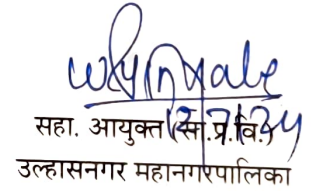 12/7/24
सहा. आयुक्त (सा.प्र.वि.)
उल्हासनगर महानगरपालिका